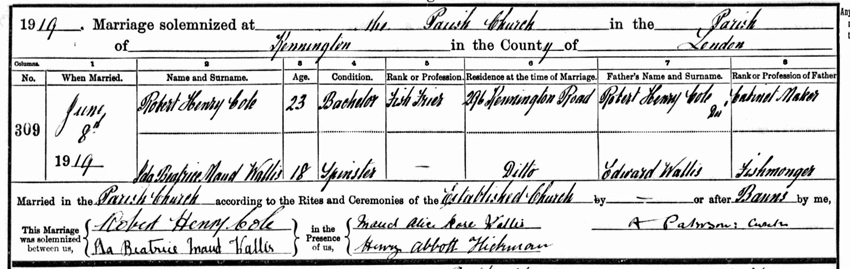 1919. Marriage solemnized at the Parish Church in the Parish
of Kennington in the County of London
Columns. 1 2 3 4 5 6 7 8
No. When Married. Name and Surname. Age. Condition. Rank or Profession. Residence at the time of Marriage. Father's Name and Surname. Rank or Profession of Father
309 June 8th 1919
Robert Henry Cole 23 Bachelor Fish Frier 296 Kennington Road Robert Henry Cole Cabinet Maker
Ida Beatrice Maud Wallis 18 Spinster — Ditto Edward Wallis Fishmonger
Married in the Parish Church according to the Rites and Ceremonies of the Established Church by — or after Banns by me,
This Marriage was solemnized between us, Robert Henry Cole in the Presence of us, Maud Alice Rose Wallis A
Ida Beatrice Maud Wallis Henry Abbott Hickman